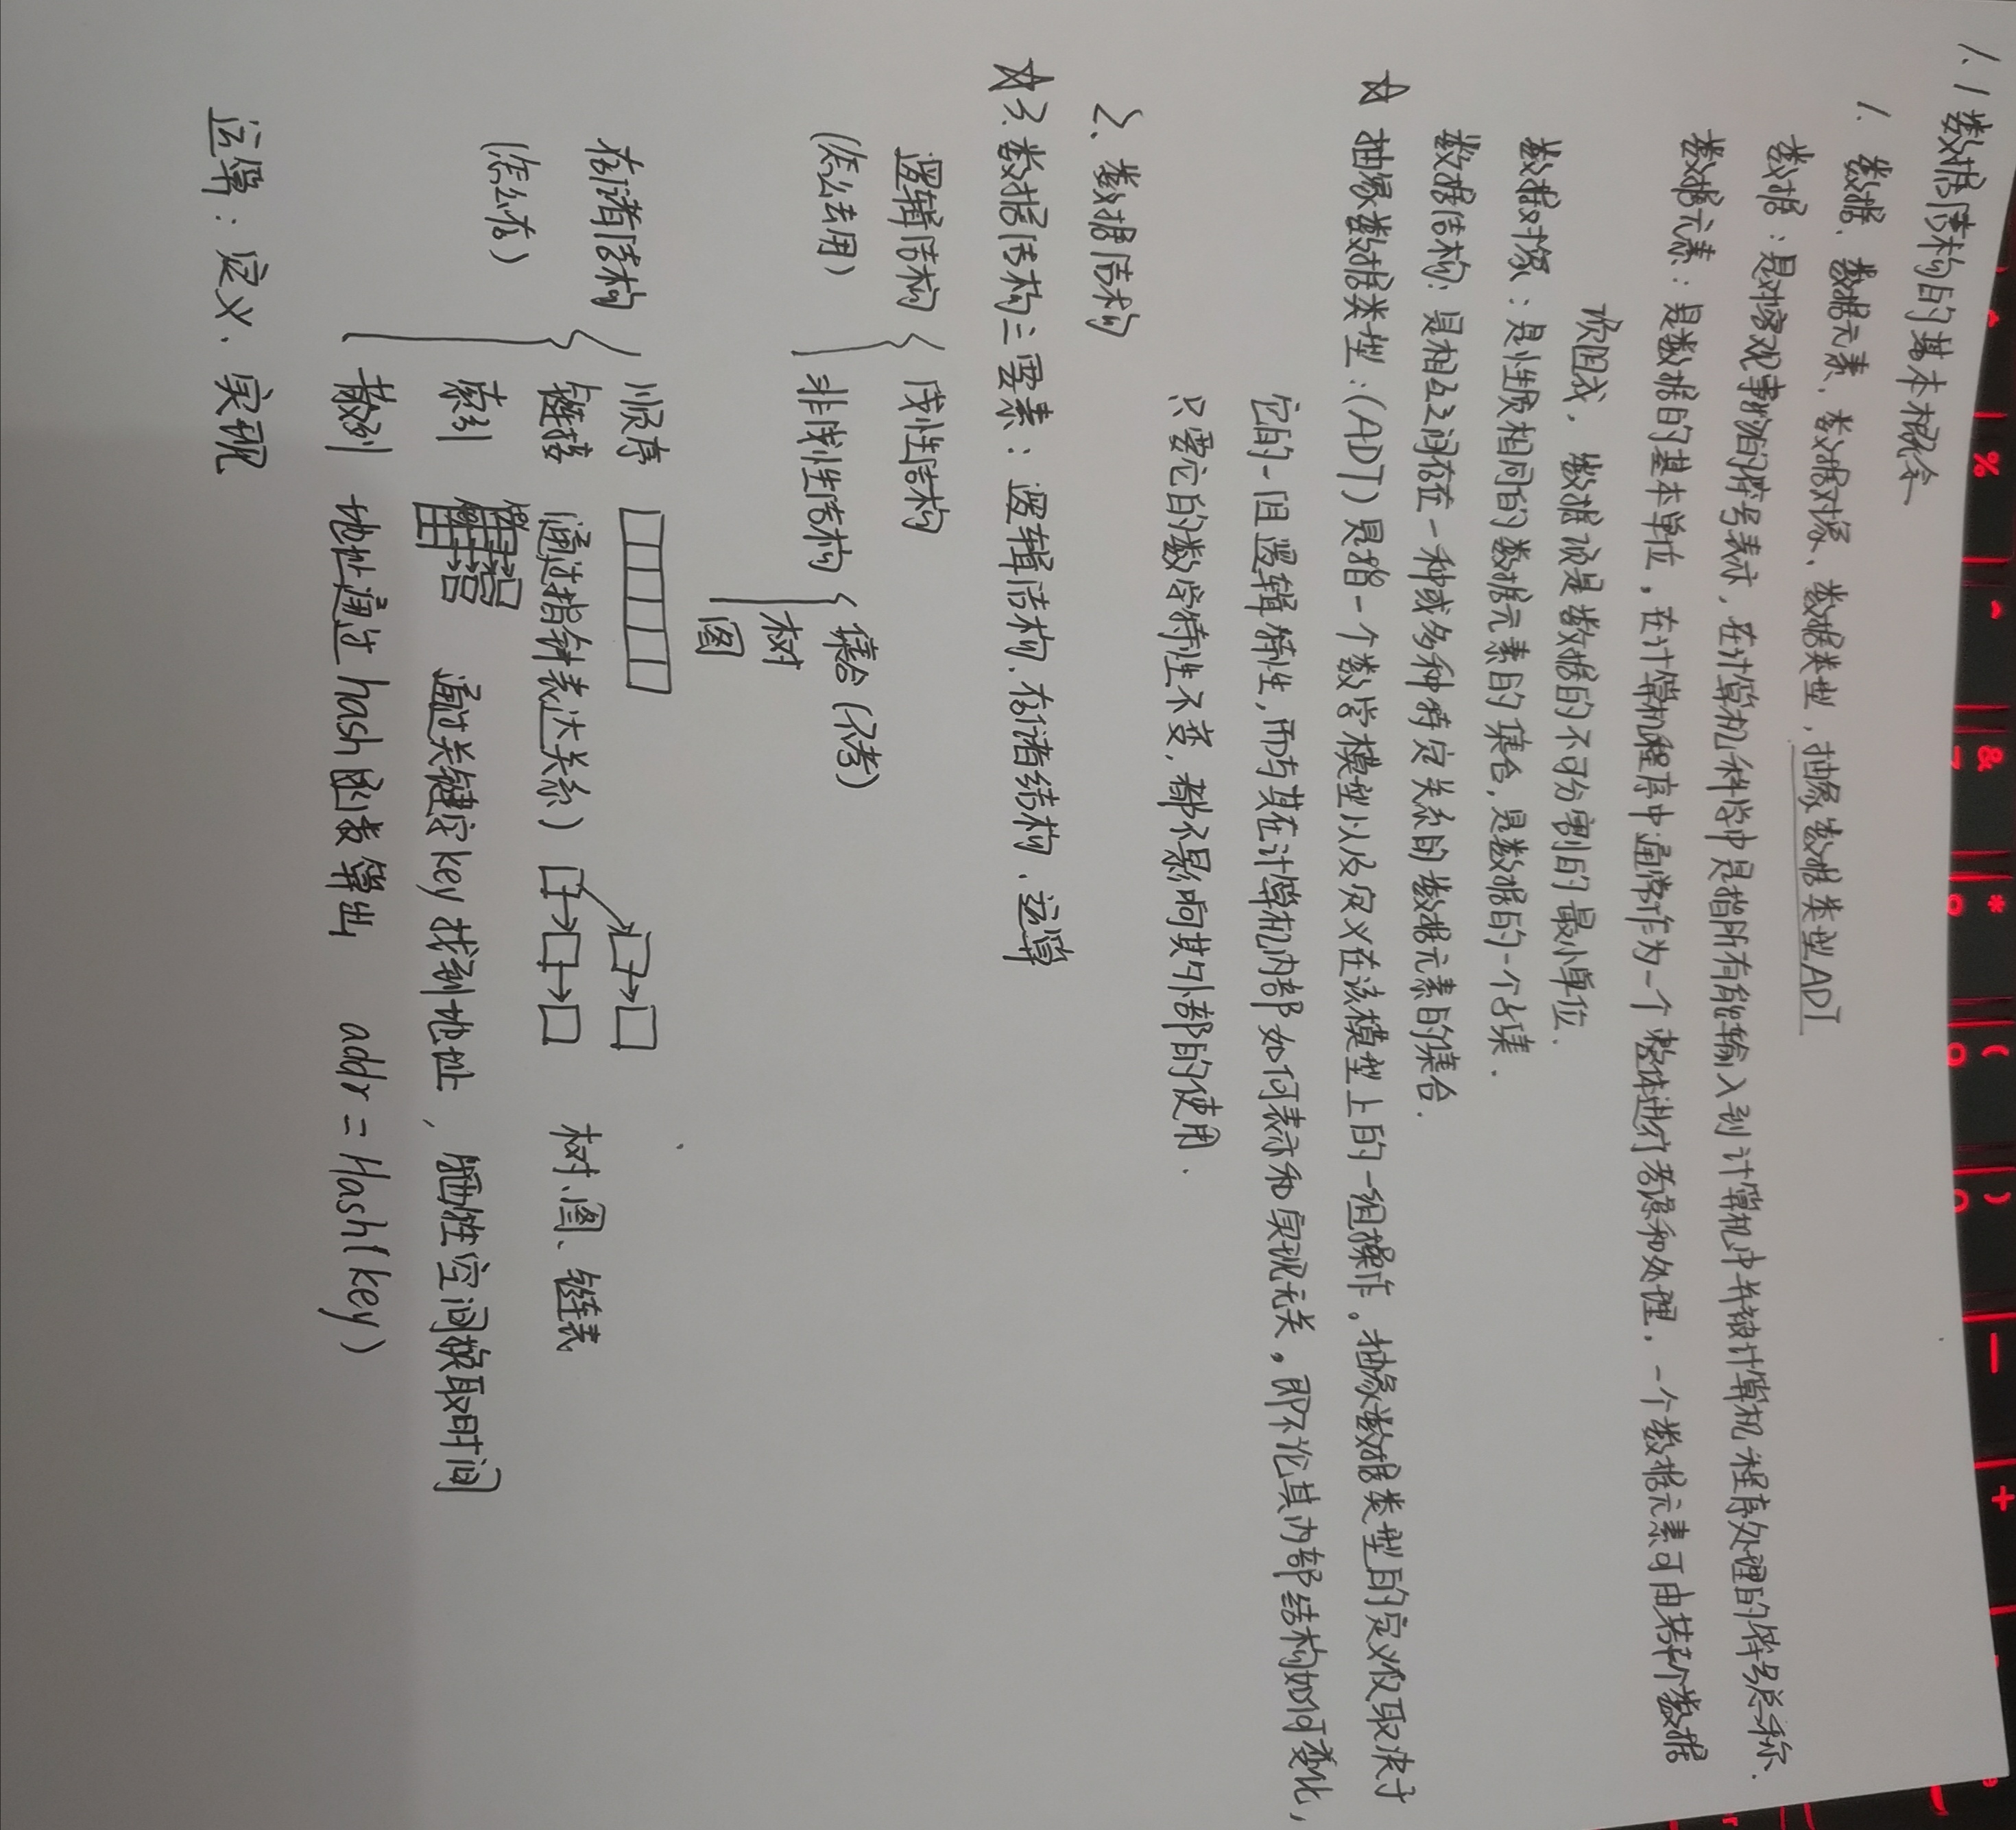 % ^ & * ( ) — +
1.1 数据结构的基本概念
1. 数据、数据元素、数据对象、数据类型,抽象数据类型ADT
数据:是对客观事物的符号表示,在计算机科学中是指所有能输入到计算机中并被计算机程序处理的符号总称.
数据元素:是数据的基本单位。在计算机程序中通常作为一个整体进行考虑和处理。一个数据元素可由若干个数据
项组成,数据项是数据的不可分割的最小单位.
数据对象:是性质相同的数据元素的集合,是数据的一个子集.
数据结构:是相互之间存在一种或多种特定关系的数据元素的集合.
☆ 抽象数据类型:(ADT)是指一个数学模型以及定义在该模型上的一组操作。抽象数据类型的定义仅取决于
它的一组逻辑特性,而与其在计算机内部如何表示和实现无关。即不论其内部结构如何变化,
只要它的数学特性不变,都不影响其外部的使用.
2. 数据结构
☆3. 数据结构三要素:逻辑结构、存储结构、运算
逻辑结构 线性结构
(怎么去用) 非线性结构 集合(不考)
树
图
存储结构 顺序
链接 (通过指针表达关系) 树、图、链表
(怎么存)
索引 通过关键字key找到地址,牺牲空间换取时间
散列 地址通过hash函数算出 addr = Hash(key)
运算:定义、实现